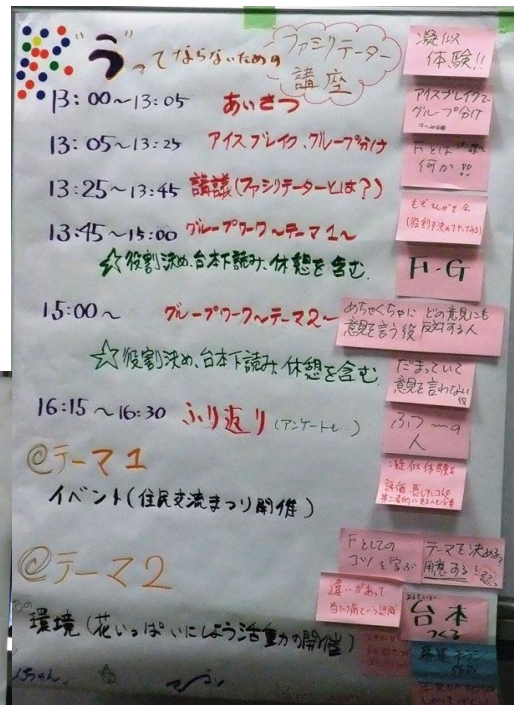 "う"ってならないための
ファシリテーター
講座
13:00～13:05 あいさつ
13:05～13:25 アイスブレイク、グループ分け
13:25～13:45 講議(ファシリテーターとは?)
13:45～15:00 グループワーク～テーマ1～
☆役割決め、台本下読み、休憩を含む
15:00～ グループワーク～テーマ2～
☆役割決め、台本下読み、休憩を含む
16:15～16:30 ふり返り(アンケートも…)
@テーマ1
イベント(住民交流まつり開催)
@テーマ2
環境(花いっぱいにしよう活動の開催)
凝似
体験!!
アイスブレイクで
グループ分け
Fとは
何か!!
F・G
めちゃくちゃに
意見を言う役
どの意見にも
反対する人
だまっていて
意見を言わない
役
ふつーの
人
凝似体験を
Fとしての
コツを学ぶ
テーマを決める
用意する
違いがあって
当たり前という認識
台本
つくる